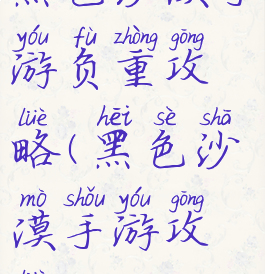 yóu fù zhòng gōng
游负重攻
lüè hēi sè shā
略(黑色沙
mò shǒu yóu gōng
漠手游攻